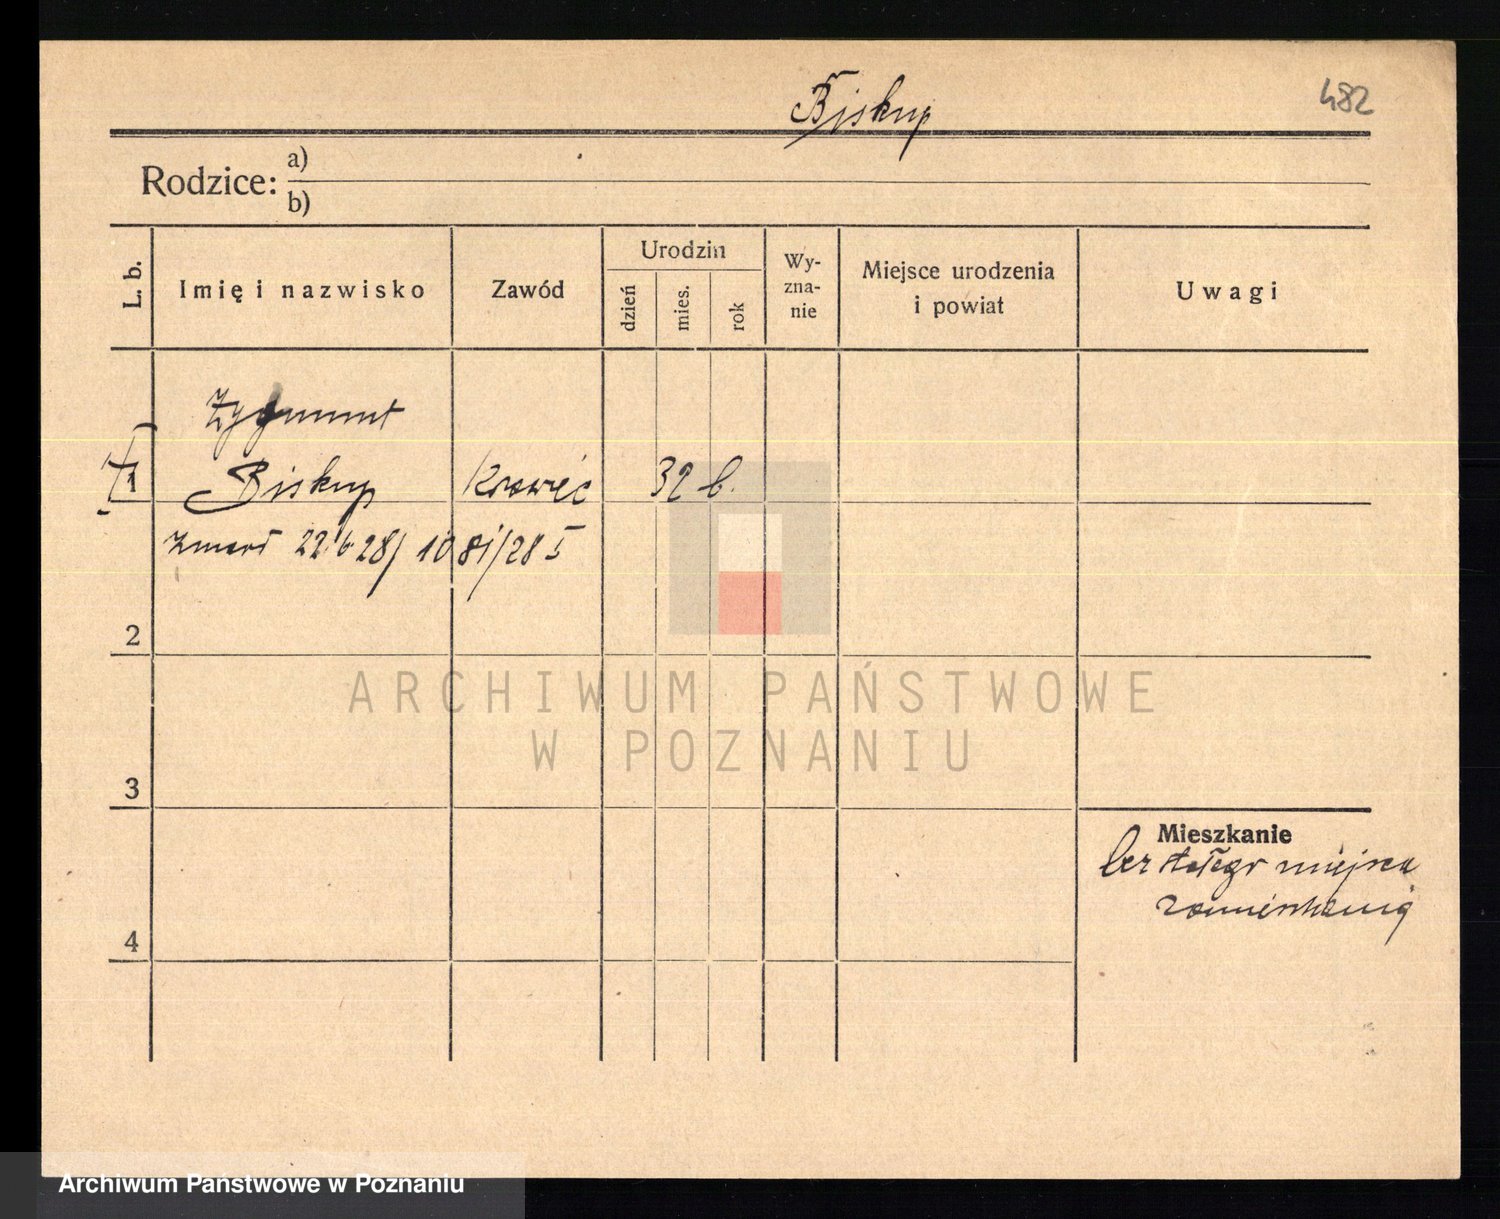 Biskup
482
Rodzice: a)
b)
L. b.
Imię i nazwisko
Zawód
Urodzin
dzień
mies.
rok
Wy-
zna-
nie
Miejsce urodzenia
i powiat
Uwagi
Zygmunt
1 Biskup krawiec 32 l.
zmarł 22/6 28/ 1081/28 I
2
ARCHIWUM PAŃSTWOWE
W POZNANIU
3
Mieszkanie
bez stałego miejsca
zamieszkania
4
Archiwum Państwowe w Poznaniu